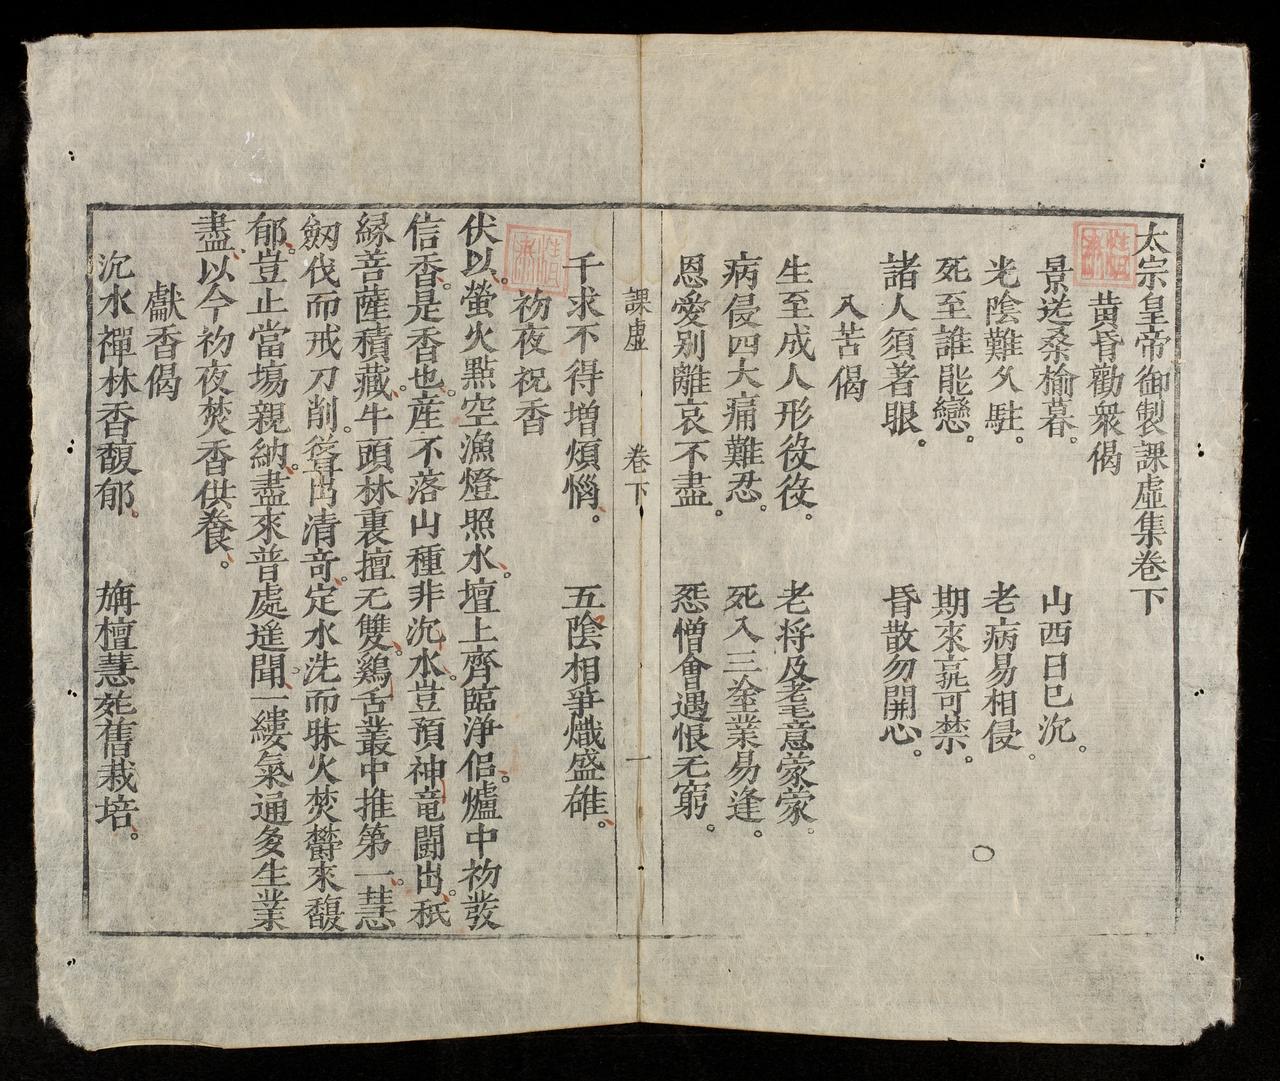 太宗皇帝御製課虛集卷下
黄昏勸衆偈
景送桑榆暮。 山西日已沉。
光陰難久駐。 老病易相侵。
死至誰能戀。 期來豈可禁。
諸人須著眼。 昏散勿開心。
八苦偈
生至成人形役役。 老将及耄意蒙蒙。
病侵四大痛難忍。 死入三塗業易逢。
恩愛别離哀不盡。 怨憎會遇恨无窮。
課虛 卷下 一
千求不得增煩惱。 五陰相爭熾盛碓。
初夜祝香
伏以。螢火點空漁燈照水。壇上齊臨浄侣。爐中初發
信香。是香也。産不落山種非沉水。豈預神竜闘出。秖
縁善薩積藏。牛頭林裏擅无雙。鷄舌叢中推第一。慧
劔伐而戒刀削。後尋出清奇。定水洗而昧火焚。欝來馥
郁。豈止當塲親納。盡來普處遥聞。一縷氣通多生業
盡。以今初夜焚香供養。
獻香偈
沉水禪林香馥郁。 旃檀慧苑舊栽培。